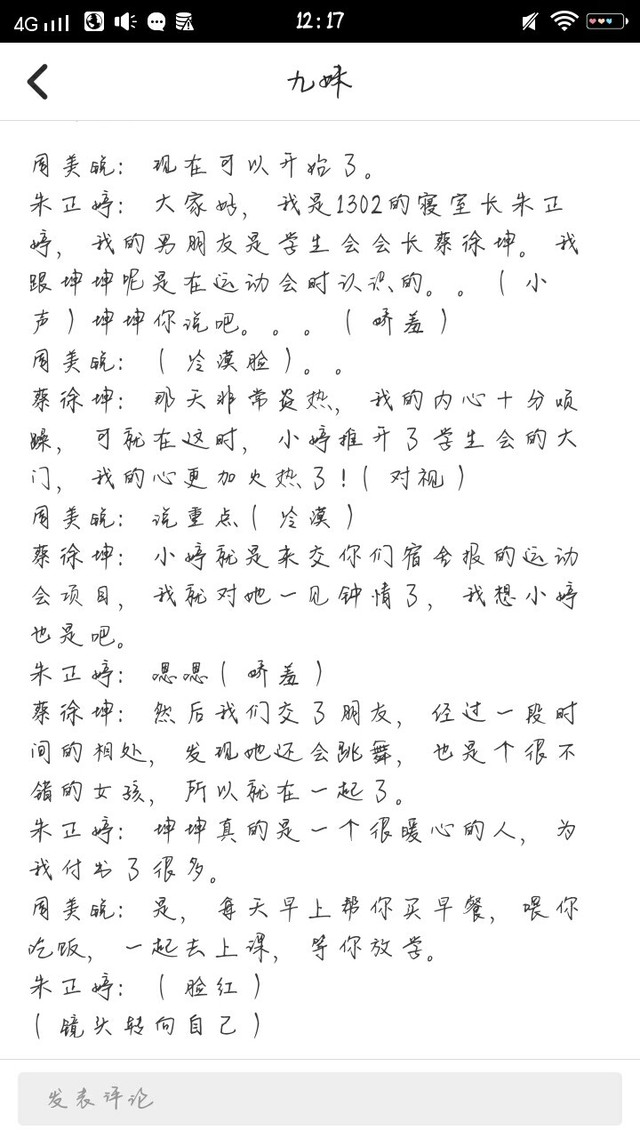 4G 12:17
九妹
周美皖：现在可以开始了。
朱正婷：大家好，我是1302的寝室长朱正
婷，我的男朋友是学生会会长蔡徐坤。我
跟坤坤呢是在运动会时认识的。。（小
声）坤坤你说吧。。。（娇羞）
周美皖：（冷漠脸）。。
蔡徐坤：那天非常炎热，我的内心十分烦
躁，可就在这时，小婷推开了学生会的大
门，我的心更加火热了！（对视）
周美皖：说重点（冷漠）
蔡徐坤：小婷就是来交你们宿舍报的运动
会项目，我就对她一见钟情了，我想小婷
也是吧。
朱正婷：嗯嗯（娇羞）
蔡徐坤：然后我们交了朋友，经过一段时
间的相处，发现她还会跳舞，也是个很不
错的女孩，所以就在一起了。
朱正婷：坤坤真的是一个很暖心的人，为
我付出了很多。
周美皖：是，每天早上帮你买早餐，喂你
吃饭，一起去上课，等你放学。
朱正婷：（脸红）
（镜头转向自己）
发表评论